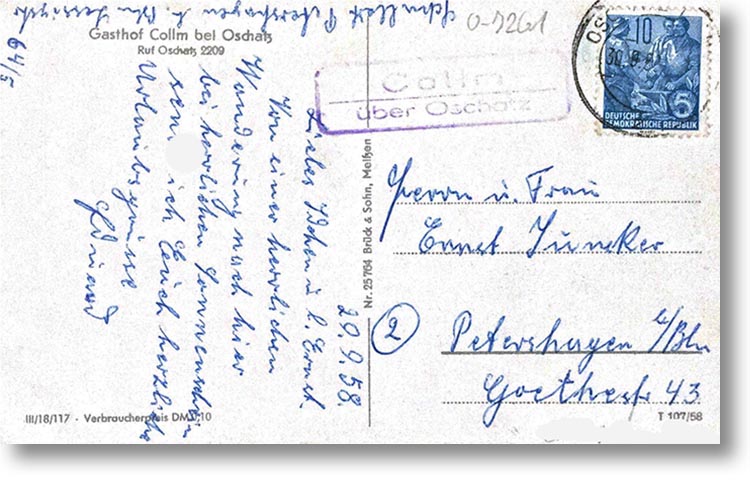 Gasthof Collm bei Oschatz
Ruf Oschatz 2209
64/5
O-7261
Collm
über Oschatz
10
5
DEUTSCHE
DEMOKRATISCHE REPUBLIK
29.9.58.
Liebes u. l. Ernst.
Von einer herrlichen
Wanderung nach hier
bei herrlichen Sonnenschein
sen ich Euch herzliche
Urlaubsgrüsse
Eduard
Nr. 25764 Brück & Sohn, Meißen
Herrn u. Frau
Ernst Juncker
2
Petershagen b/Bln
Goethestr 43
III/18/117 · Verbraucherpreis DM 0,10
T 107/58